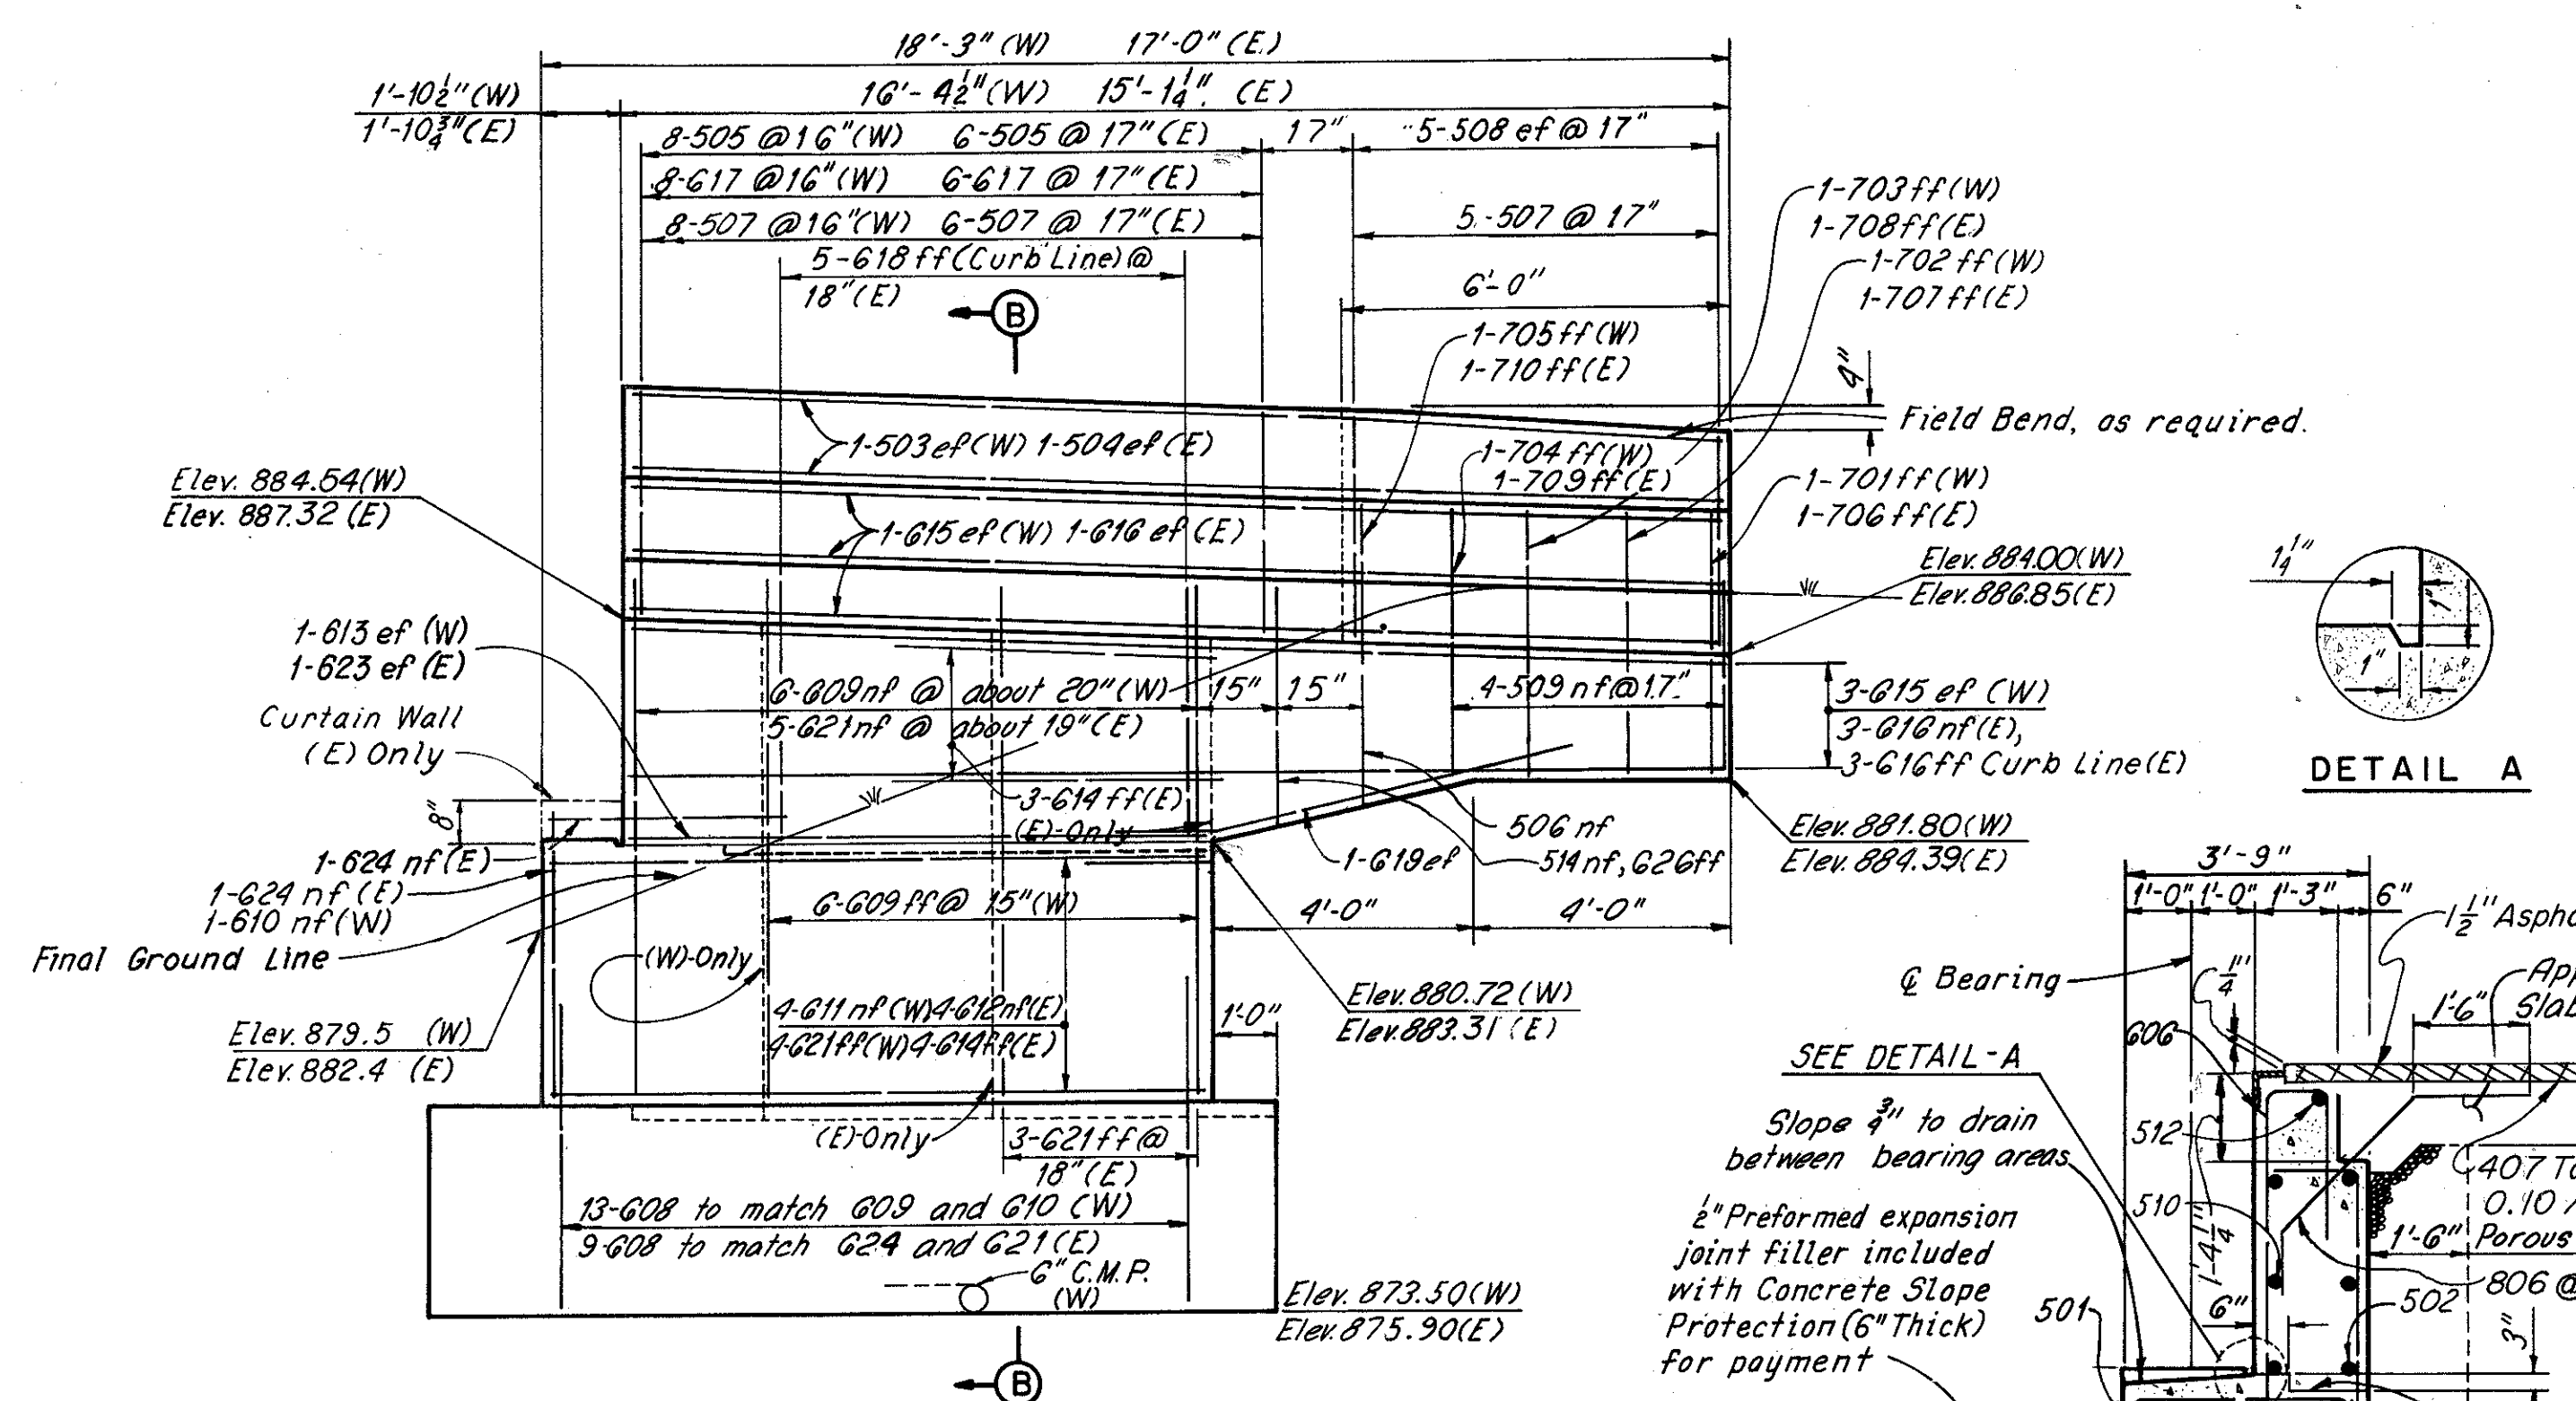 18'-3" (W) 17'-0" (E)
16'-4½" (W) 15'-1¼" (E)
1'-10½" (W)
1'-10¾" (E)
8-505 @ 16" (W) 6-505 @ 17" (E)
17"
5-508 ef @ 17"
8-617 @ 16" (W) 6-617 @ 17" (E)
8-507 @ 16" (W) 6-507 @ 17" (E)
5-507 @ 17"
5-618 ff (Curb Line) @
18" (E)
6'-0"
B
1-703 ff (W)
1-708 ff (E)
1-702 ff (W)
1-707 ff (E)
1-705 ff (W)
1-710 ff (E)
4"
Field Bend, as required.
1-503 ef (W) 1-504 ef (E)
1-704 ff (W)
1-709 ff (E)
1-701 ff (W)
1-706 ff (E)
Elev. 884.54 (W)
Elev. 887.32 (E)
1-615 ef (W) 1-616 ef (E)
Elev. 884.00 (W)
Elev. 886.85 (E)
1-613 ef (W)
1-623 ef (E)
Curtain Wall
(E) Only
6-609 nf @ about 20" (W)
5-621 nf @ about 19" (E)
15"
15"
4-509 nf @ 17"
3-615 ef (W)
3-616 nf (E),
3-616 ff Curb Line (E)
1¼"
1"
1"
DETAIL A
8"
3-614 ff (E)
(E)-Only
506 nf
1-619 ef
514 nf, 626 ff
Elev. 881.80 (W)
Elev. 884.39 (E)
1-624 nf (E)
1-624 nf (E)
1-610 nf (W)
Final Ground Line
6-609 ff @ 15" (W)
4'-0"
4'-0"
(W)-Only
Elev. 879.5 (W)
Elev. 882.4 (E)
4-611 nf (W) 4-612 nf (E)
4-621 ff (W) 4-614 ff (E)
1'-0"
Elev. 880.72 (W)
Elev. 883.31 (E)
(E)-Only
3-621 ff @
18" (E)
13-608 to match 609 and 610 (W)
9-608 to match 624 and 621 (E)
6" C.M.P.
(W)
Elev. 873.50 (W)
Elev. 875.90 (E)
B
3'-9"
1'-0" 1'-0" 1'-3" 6"
1½" Aspha
℄ Bearing
¼"
App
Slab
1'-6"
606
SEE DETAIL-A
Slope ¾" to drain
between bearing areas
512
510
1'-4¼"
407
0.10
1'-6"
Porous
806 @
502
501
6"
3"
½" Preformed expansion
joint filler included
with Concrete Slope
Protection (6" Thick)
for payment